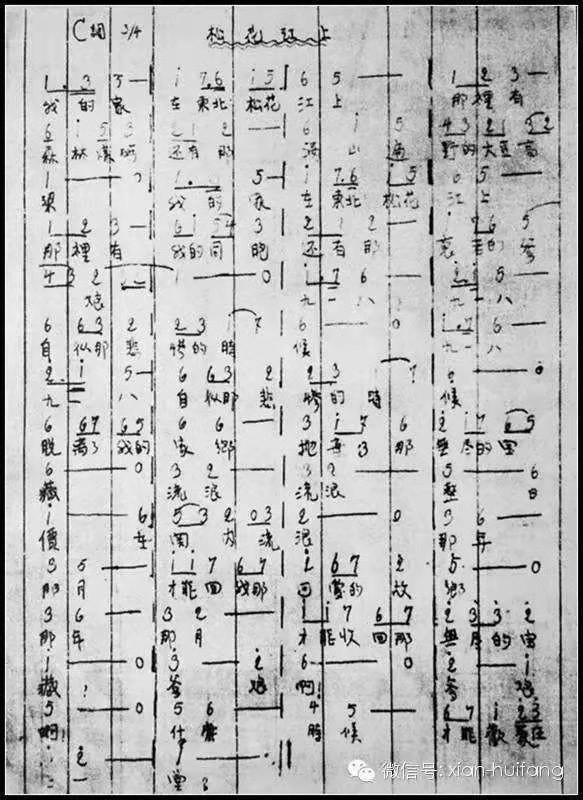 C調 3/4 松花江上
1 3 3 — i 7 6 i 5 6 5 — 1 2 3 —
我的家 在東北松花江上 那裡有
6 i 5 3 2 1 2 — 6 i 5 4 3 2 1 5 2
森林 還有那滿山遍野的大豆高
1 — — 0 1 . 6 5 — i 7 6 i 5 6 5 —
梁 我的家 在東北松花江上
1 2 3 — 6 i 5 4 3 2 1 2 — i 7 6 5
那裡有 我的同胞 還有那 衰老的爹
4 3 2 1 — — 0 i 7 6 — 2 i 5 —
娘 九一八 九一八
6 6 3 2 2 3 1 7 6 — — 0 i 7 6 —
自從那悲慘的時候 九一八
2 i 5 — 6 6 3 2 2 3 7 6 — 0
九一八 自從那悲慘的時候
6 6 7 6 5 6 6 — 3 i 7 6 2 i 7 6 5
脫離了我的家鄉 拋棄了那無盡的宝
6 — — 0 3 2 — — 3 2 — — 5 — — 6
藏 流浪 流浪 整日
i — — 6 5 3 2 0 3 2 — — 0 3 6 —
價在関內流浪 那年
3 5 — i i 7 6 7 2 6 7 2 5 — — 0
那月 才能回我那可愛的故鄉
3 6 — 3 2 — i i 7 6 7 2 3 3 2
那年 那月 才能收回那無尽的宝
i — — 0 3 — — 2 6 — — 0 2 — — i
藏！ 爹娘啊！ 爹娘
5 — — 0 5 6 — 4 5 — 6 7 i 2 3
啊！ 什麼時候 才能歡聚在
2 — —
一堂？
微信号: xian-huifang